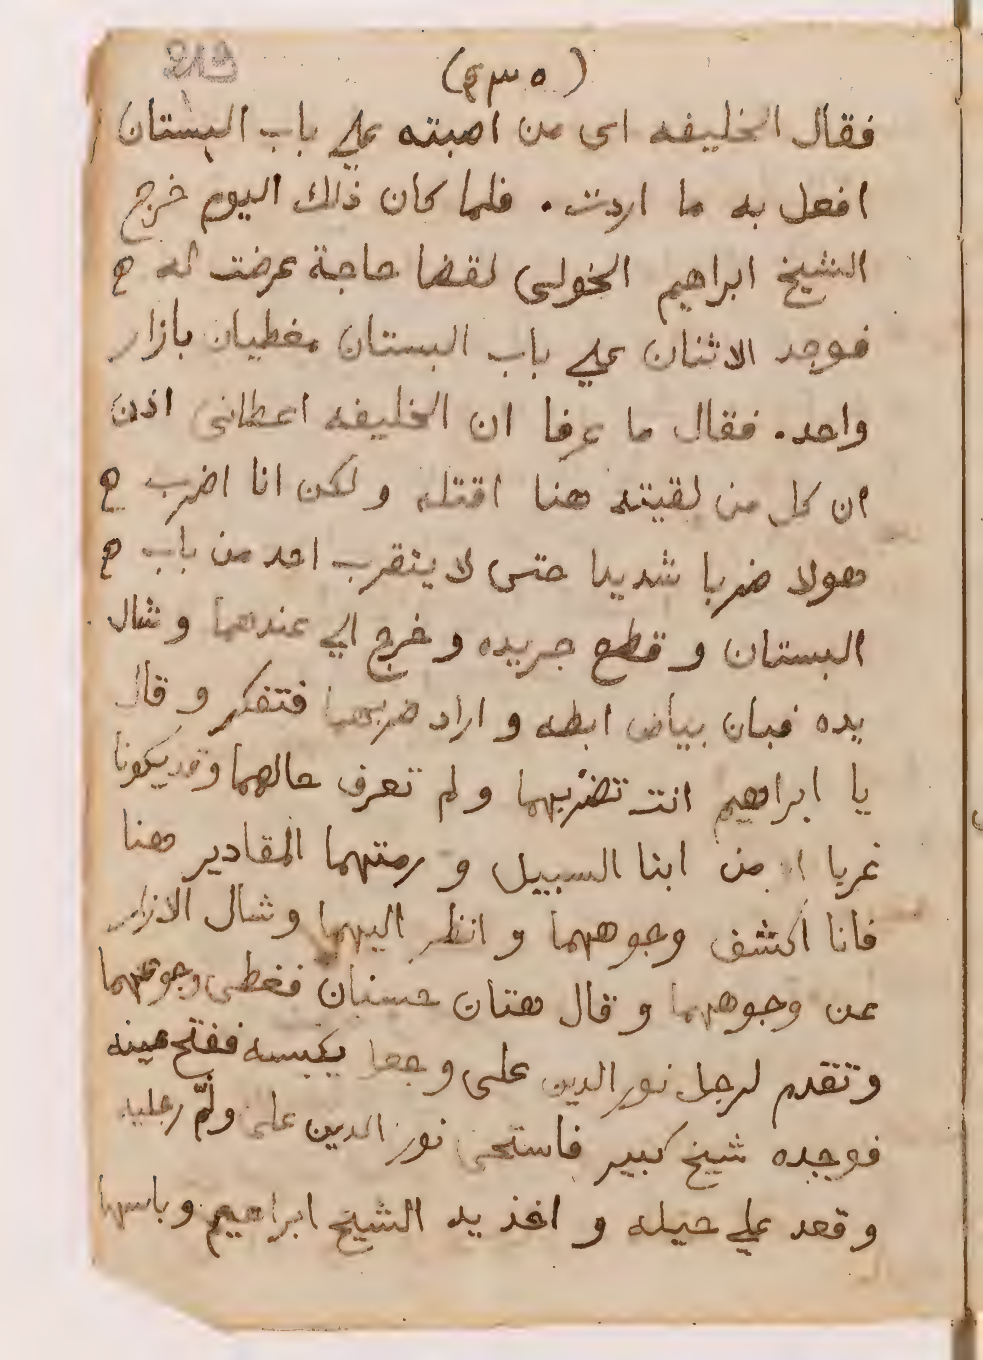 (٤٣٥)
فقال الخليفه اى من اصبته علي باب البستان
افعل به ما اردت . فلما كان ذلك اليوم خرج
الشيخ ابراهيم الخولى لقضا حاجة عرضت له
فوجد الاثنان علي باب البستان مغطيان بازار
واحد . فقال ما عرفا ان الخليفه اعطانى اذن
ان كل من لقيته هنا اقتله ولكن انا اضرب
هولا ضربا شديدا حتى لا يتقرب احد من باب
البستان و قطع جريده وخرج الي عندهما وشال
يده فبان بياض ابطه و اراد ضربهما فتفكر و قال
يا ابراهيم انت تضربهما ولم تعرف حالهما وقد يكونا
غربا من ابنا السبيل و رمتهما المقادير هنا
فانا اكشف وجوههما و انظر اليهما وشال الازار
عن وجوههما و قال هتان حسنان فغطى وجوههما
وتقدم لرجل نور الدين على وجعا يكبسه ففتح عينه
فوجده شيخ كبير فاستحى نور الدين على ولمّ رجليه
وقعد علي حيله و اخذ يد الشيخ ابراهيم وباسها